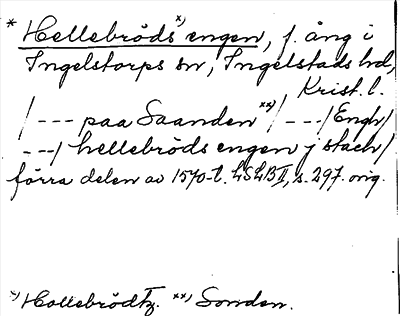 * Hellebröds*) engen, f. äng i
Ingelstorps sn, Ingelstads hd,
Krist. l.
/--- paa Saanden **)/ ---/Engh/
---/ hellebröds engen j stach/
förra delen av 1570-t. LSLB II, s. 297. orig.
*) Hollebrödtz. **) Sonden.